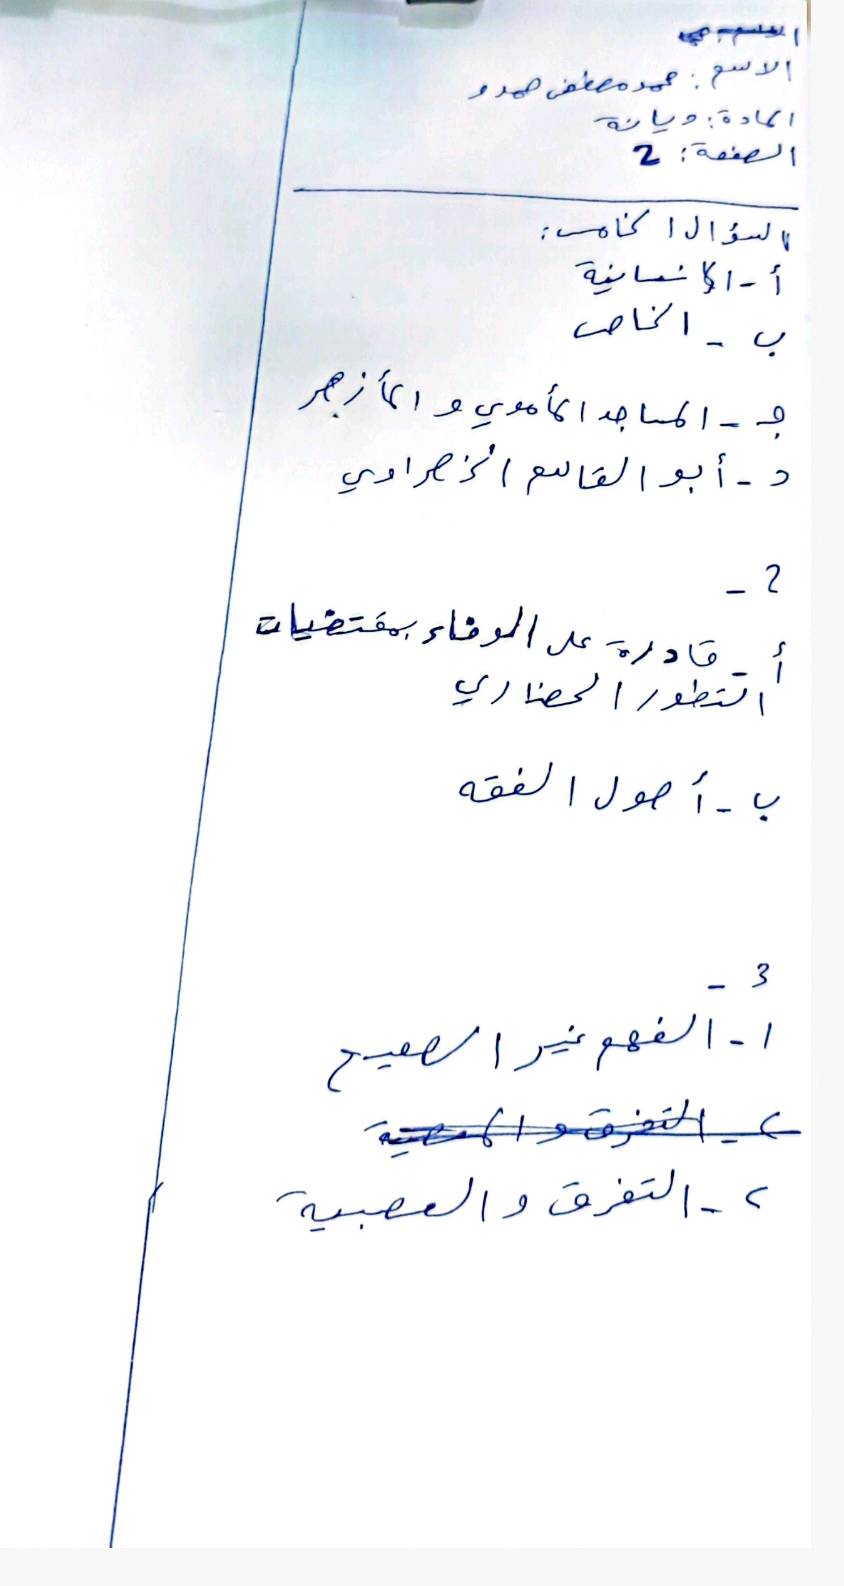 الاسم: محمد مصطفى حمدو
المادة: ديانة
الصفحة: 2
السؤال الخامس:
أ - الإنسانية
ب - الخاص
ج - المساجد الأموي و الأزهر
د - أبو القاسم الزهراوي
2 -
أ - قادرة على الوفاء بمقتضيات
التطور الحضاري
ب - أصول الفقه
3 -
١ - الفهم غير الصحيح
٢ - التفرق و العصبية